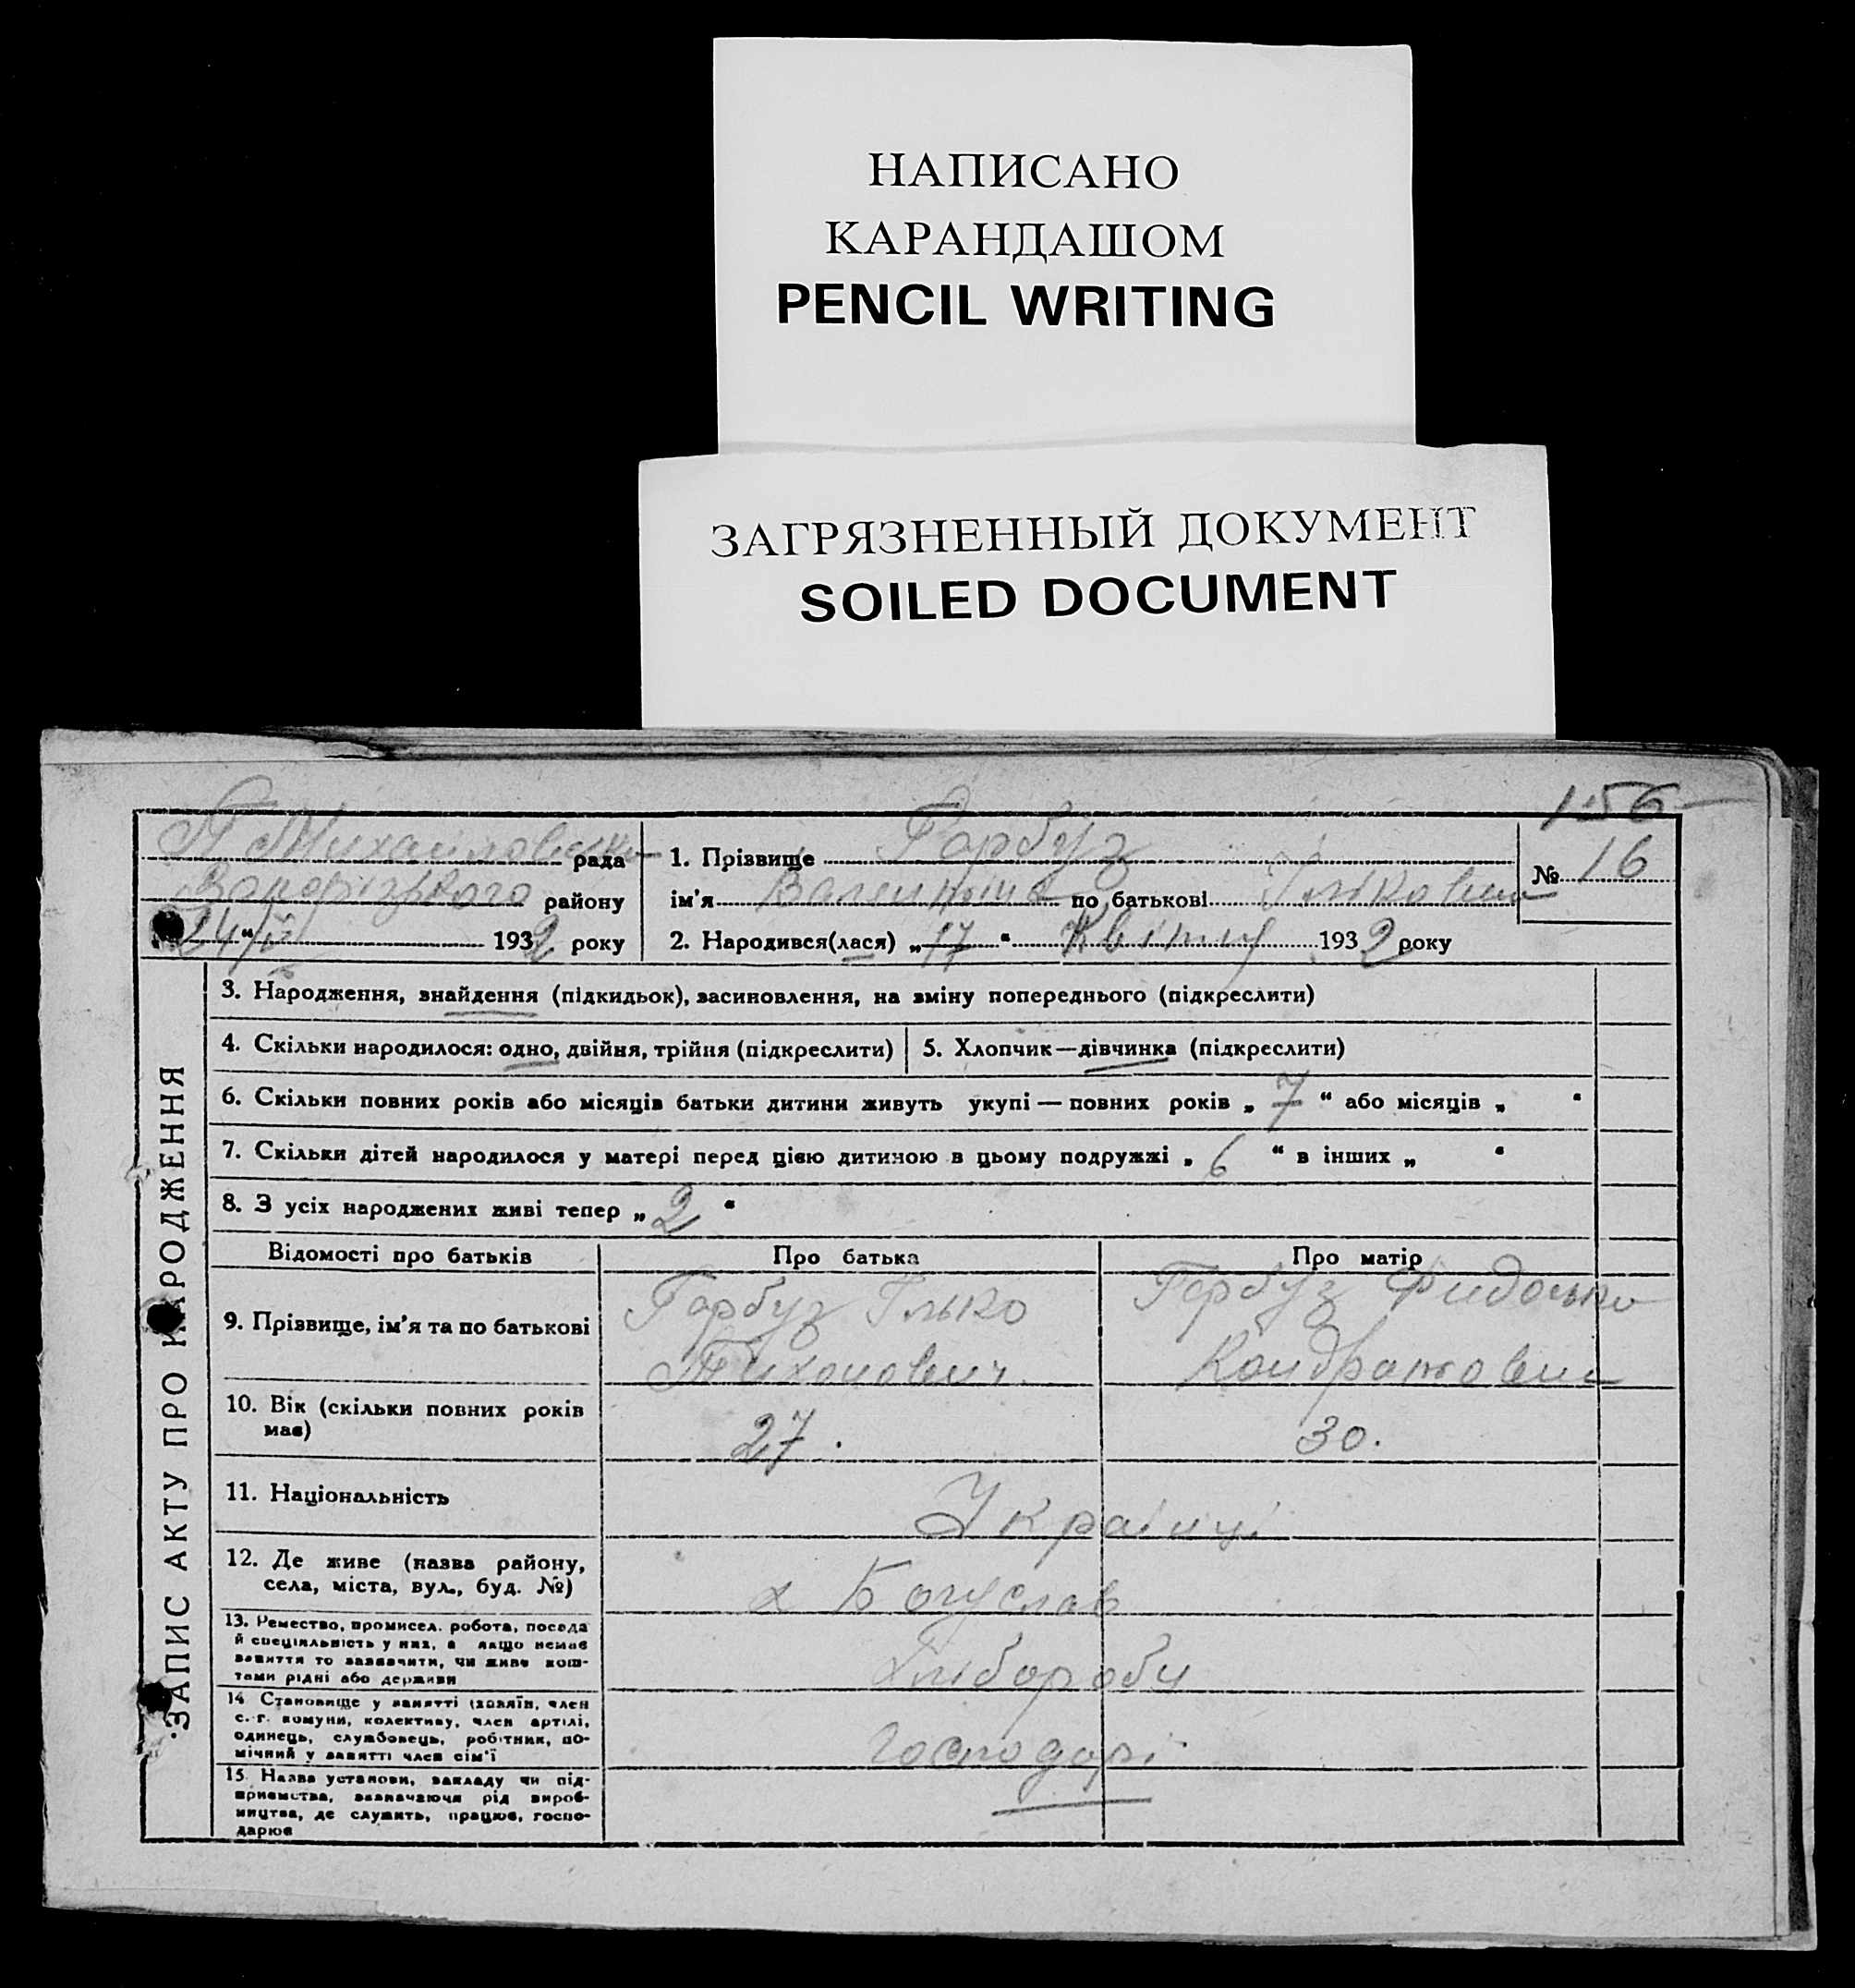 НАПИСАНО
КАРАНДАШОМ
PENCIL WRITING
ЗАГРЯЗНЕННЫЙ ДОКУМЕНТ
SOILED DOCUMENT
156
рада
Запорізького району
24/ 1932 року
1. Прізвище Гарбуз
ім'я Валентина по батькові Ільковна
2. Народився(лася) „17“ Квітну 1932 року
№ 16
ЗАПИС АКТУ ПРО НАРОДЖЕННЯ
3. Народження, знайдення (підкидьок), засиновлення, на зміну попереднього (підкреслити)
4. Скільки народилося: одно, двійня, трійня (підкреслити)
5. Хлопчик—дівчинка (підкреслити)
6. Скільки повних років або місяців батьки дитини живуть укупі — повних років „7“ або місяців „ “
7. Скільки дітей народилося у матері перед цією дитиною в цьому подружжі „6“ в інших „ “
8. З усіх народжених живі тепер „2“
Відомості про батьків Про батька Про матір
9. Прізвище, ім'я та по батькові
Гарбуз Ілько
Тихонович
Гарбуз
10. Вік (скільки повних років
має)
27.
30.
11. Національність
Українці
12. Де живе (назва району,
села, міста, вул., буд. №)
х Богуслав
13. Ремество, промисел. робота, посада
й спеціяльність у них, а якщо немає
заняття то зазначити, чи живе кош-
тами рідні або держави
Хлібороби
14. Становище у занятті (хозяїн, член
с.-г. комуни, колективу, член артілі,
одинець, службовець, робітник, по-
мічний у занятті член сім'ї
Господарі
15. Назва установи, закладу чи під-
приємства, зазначаючи рід вироб-
ництва, де служить, працює, госпо-
дарює